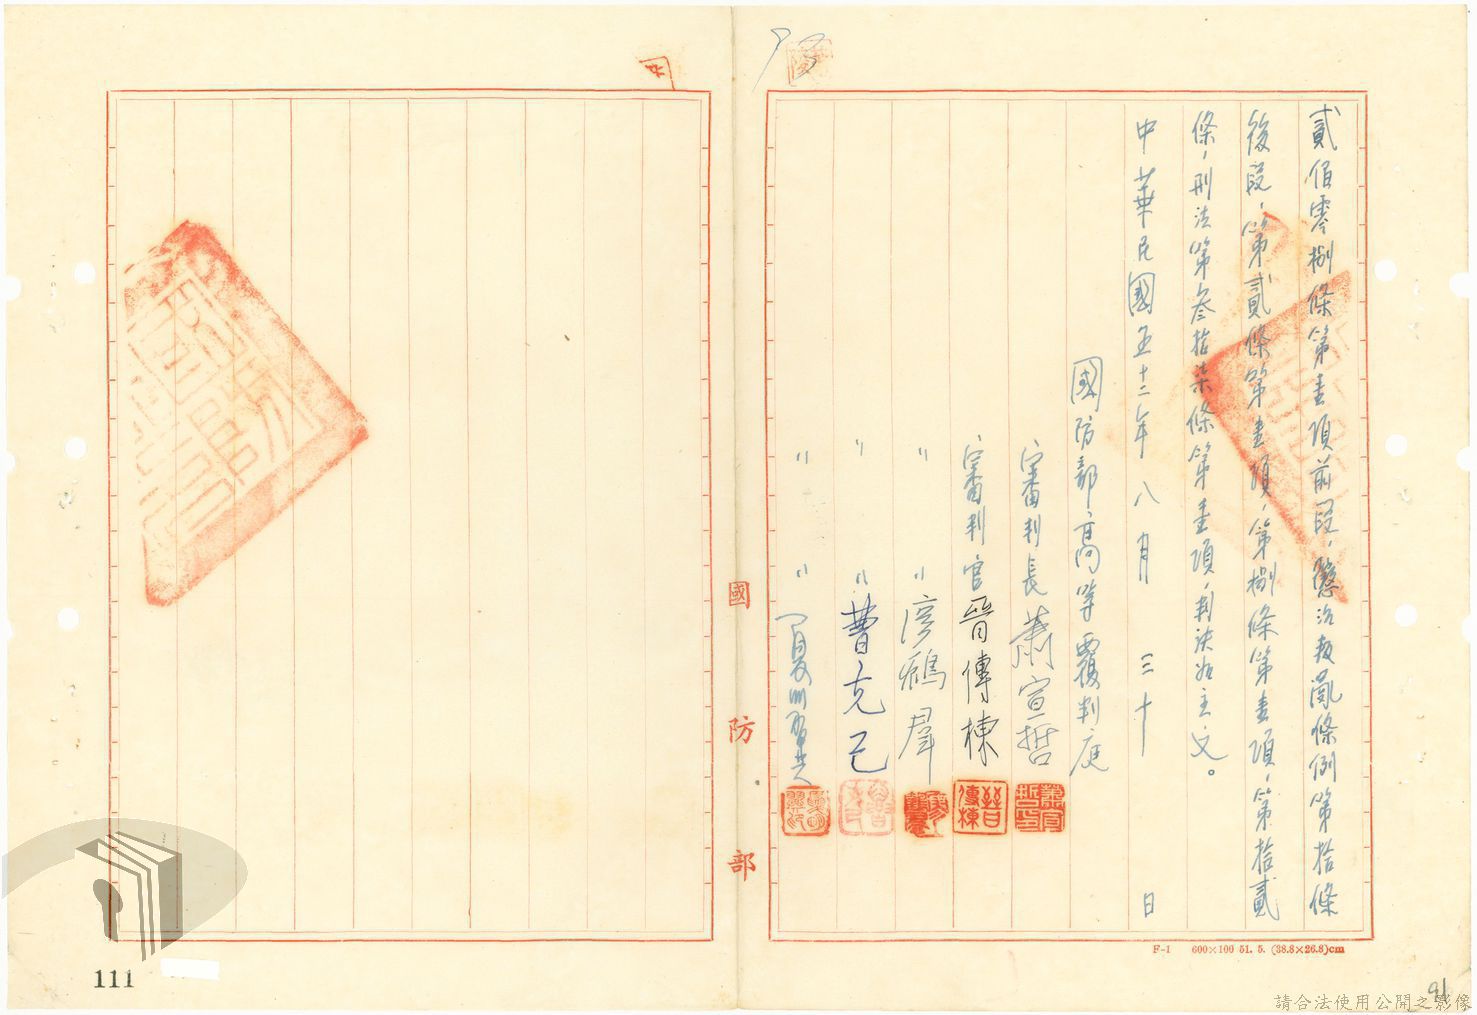 貳佰零捌條第壹項前段，懲治叛亂條例第拾條
後段，第貳條第壹項，第捌條第壹項，第拾貳
條，刑法第叁拾柒條第壹項，判決如主文。
中華民國五十二年八月三十日
國防部高等覆判庭
審判長蕭宣哲
審判官晉傳棟
〃　〃鶴羣
〃　〃曹克己
〃　〃
國防部
F-1 600×100 51. 5. (38.8×26.8)cm
111
91
請合法使用公開之影像